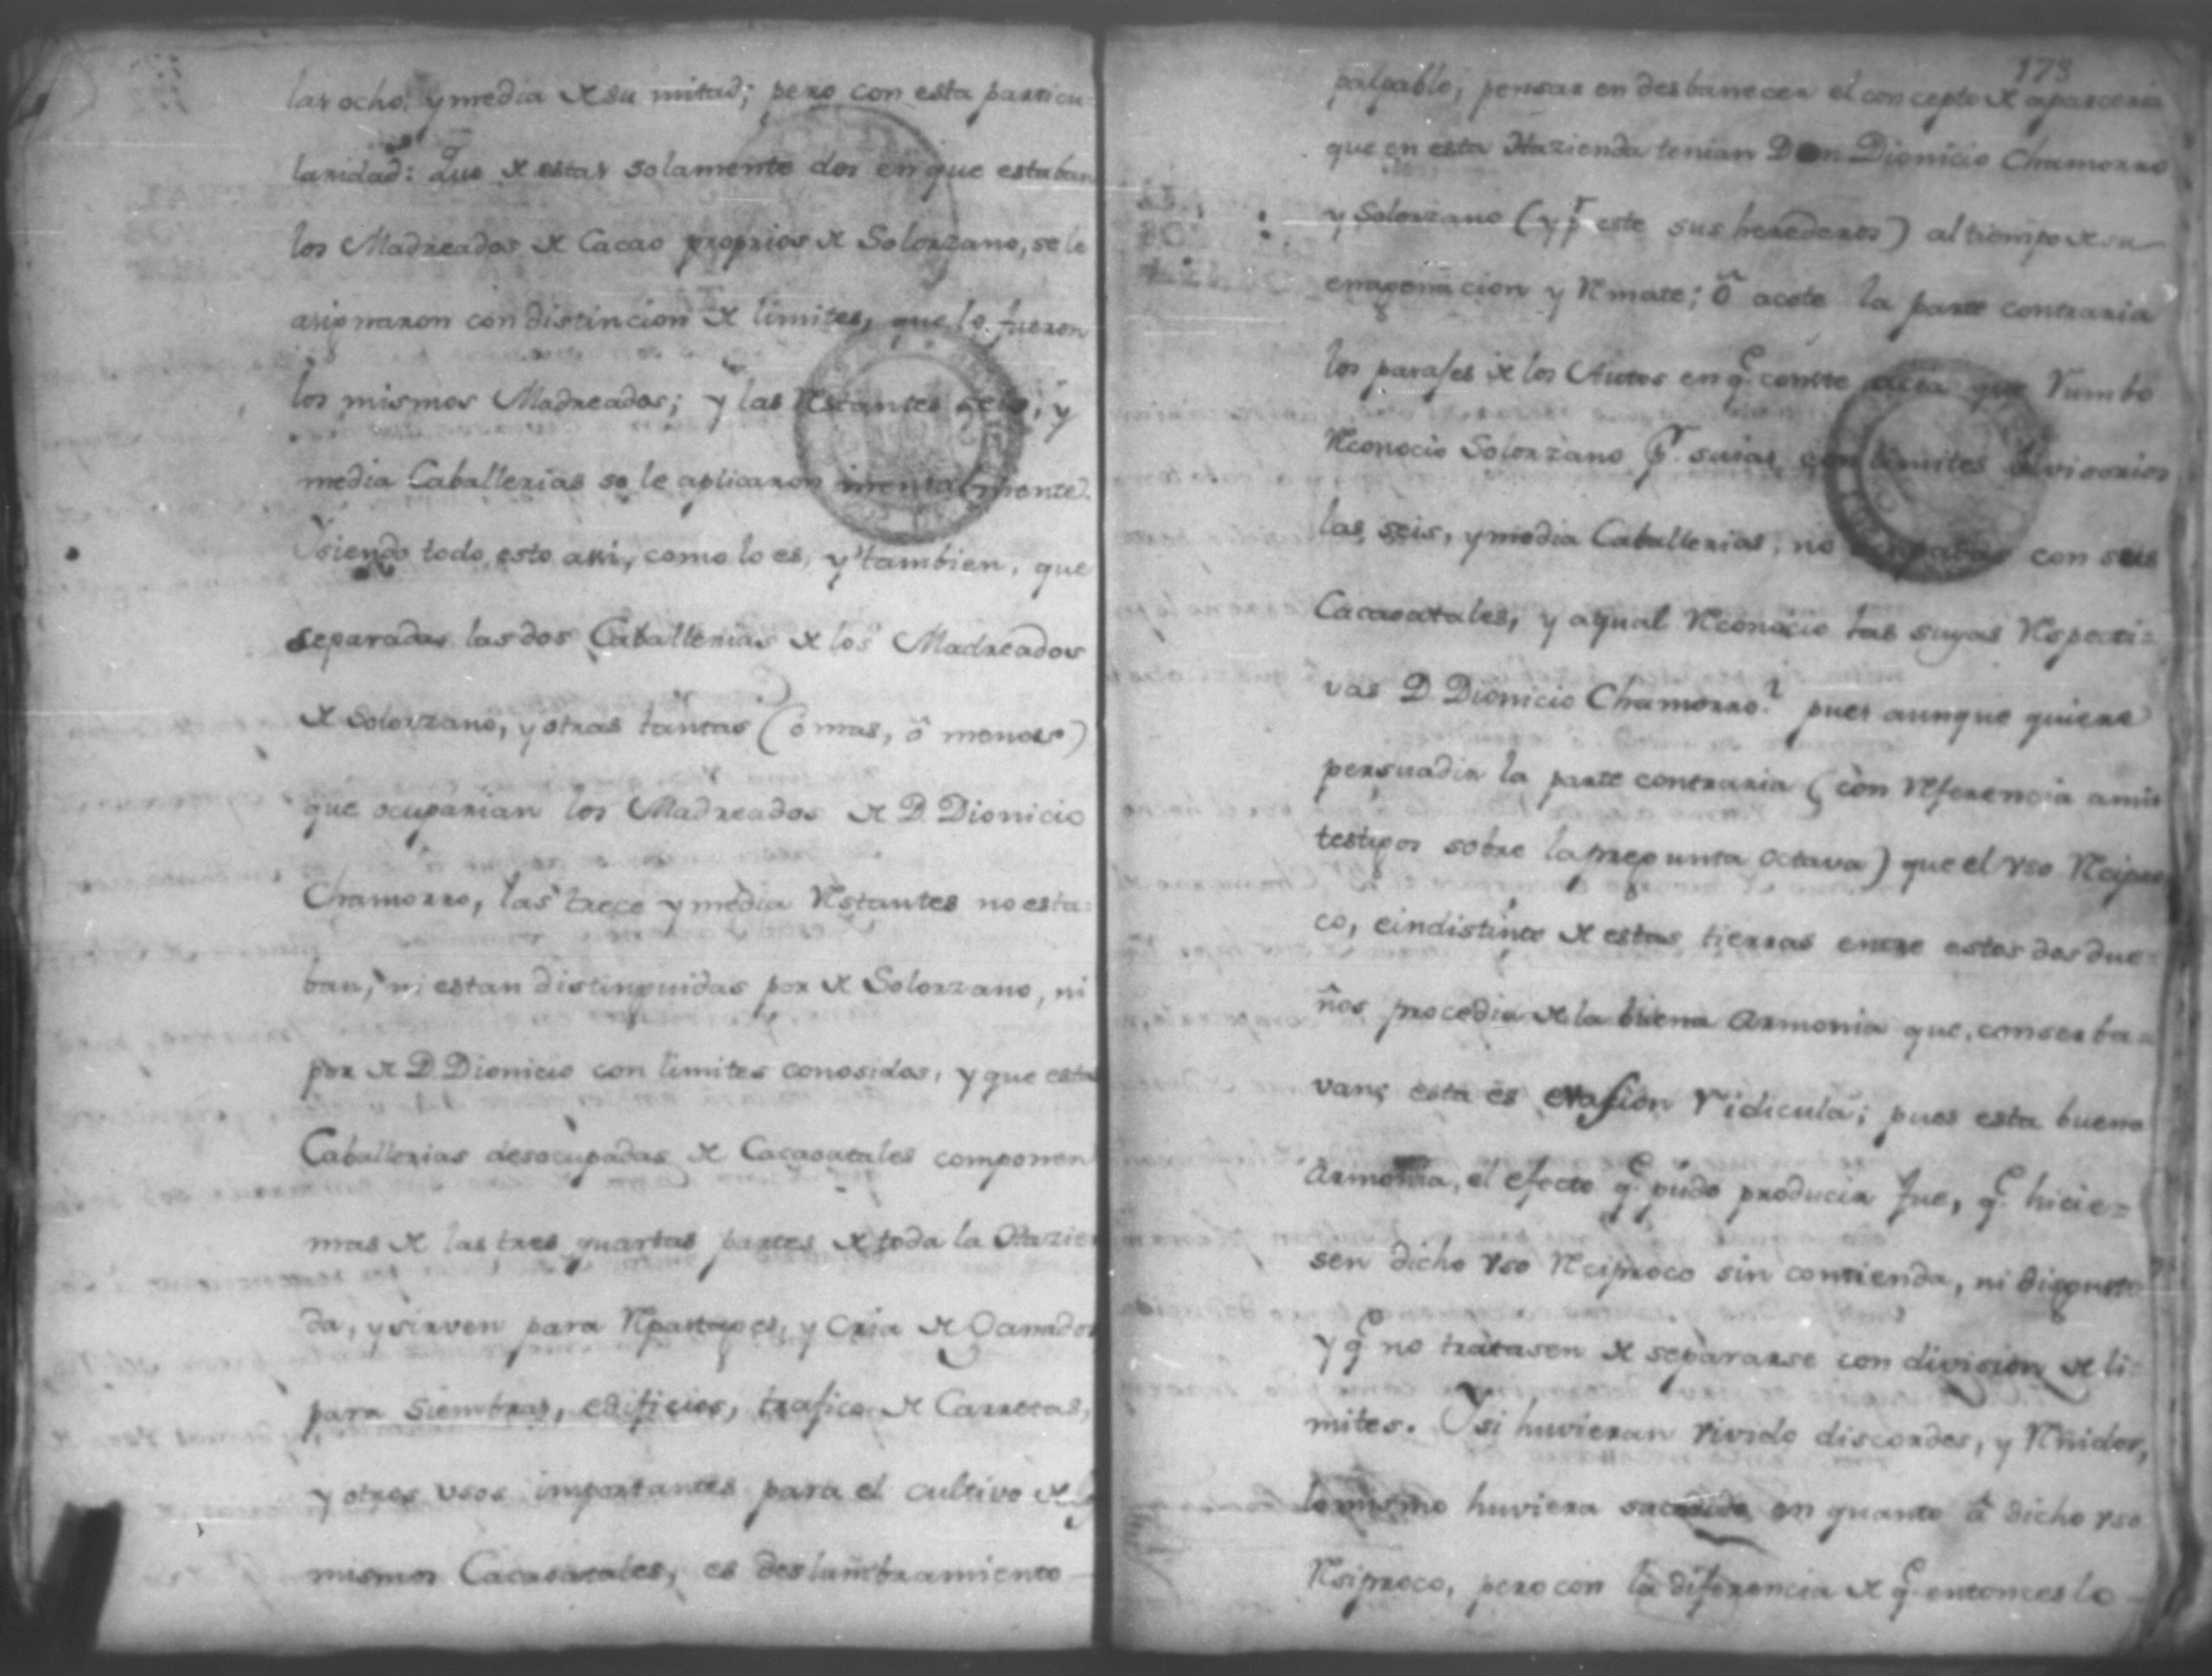 las ocho, y media de su mitad; pero con esta particu-
laridad: Que de estas solamente dos en que estaban
los Madreados de Cacao proprios de Solorzano, se le
asignaron con distincion de limites, que lo fueron
los mismos Madreados; y las Restantes seis, y
media Caballerias se le aplicaron mentalmente.
Y siendo todo esto assi, como lo es, y tambien, que
separadas las dos Caballerias de los Madreados
de Solorzano, y otras tantas (ó mas, ó menos)
que ocuparian los Madreados de D. Dionicio
Chamorro, las trece y media Restantes no esta=
ban, ni estan distinguidas por de Solorzano, ni
por de D. Dionicio con limites conosidos, y que estas
Caballerias desocupadas de Cacaoatales componen
mas de las tres quartas partes de toda la Hazien
da, y sirven para Repastages, y Cria de Ganados
para siembras, edificios, trafico de Carretas,
y otros usos importantes para el cultivo de los
mismos Cacaoatales, es deslumbramiento
173
palpable, pensar en desbanecer el concepto de aparceria
que en esta Hazienda tenian Don Dionicio Chamorro
y Solorzano (y pr. este sus herederos) al tiempo de su
enagenacion y Remate; ó acote la parte contraria
los parajes de los Autos en q.e conste acia que Rumbo
Reconocio Solorzano pr. suias, con limites divisorios
las seis, y media Caballerias, no ocupadas con sus
Cacaoatales, y a qual Reconocio las suyas Respecti=
vas D. Dionicio Chamorro? pues aunque quiere
persuadir la parte contraria (con Referencia a mis
testigos sobre la pregunta octava) que el vso Recipro
co, e indistinto de estas tierras entre estos dos due=
ños procedia de la buena Armonia que, conserba
van; esta es evasion Ridicula; pues esta buena
Armonia, el efecto q.e pudo producir fue, q.e hicie=
sen dicho vso Reciproco sin contienda, ni disgusto
y q.e no tratasen de separarse con division de li=
mites. Y si huvieran vivido discordes, y Reñidos,
lo mismo huviera sucedido en quanto á dicho vso
Resiproco, pero con la diferencia de q.e entonces lo